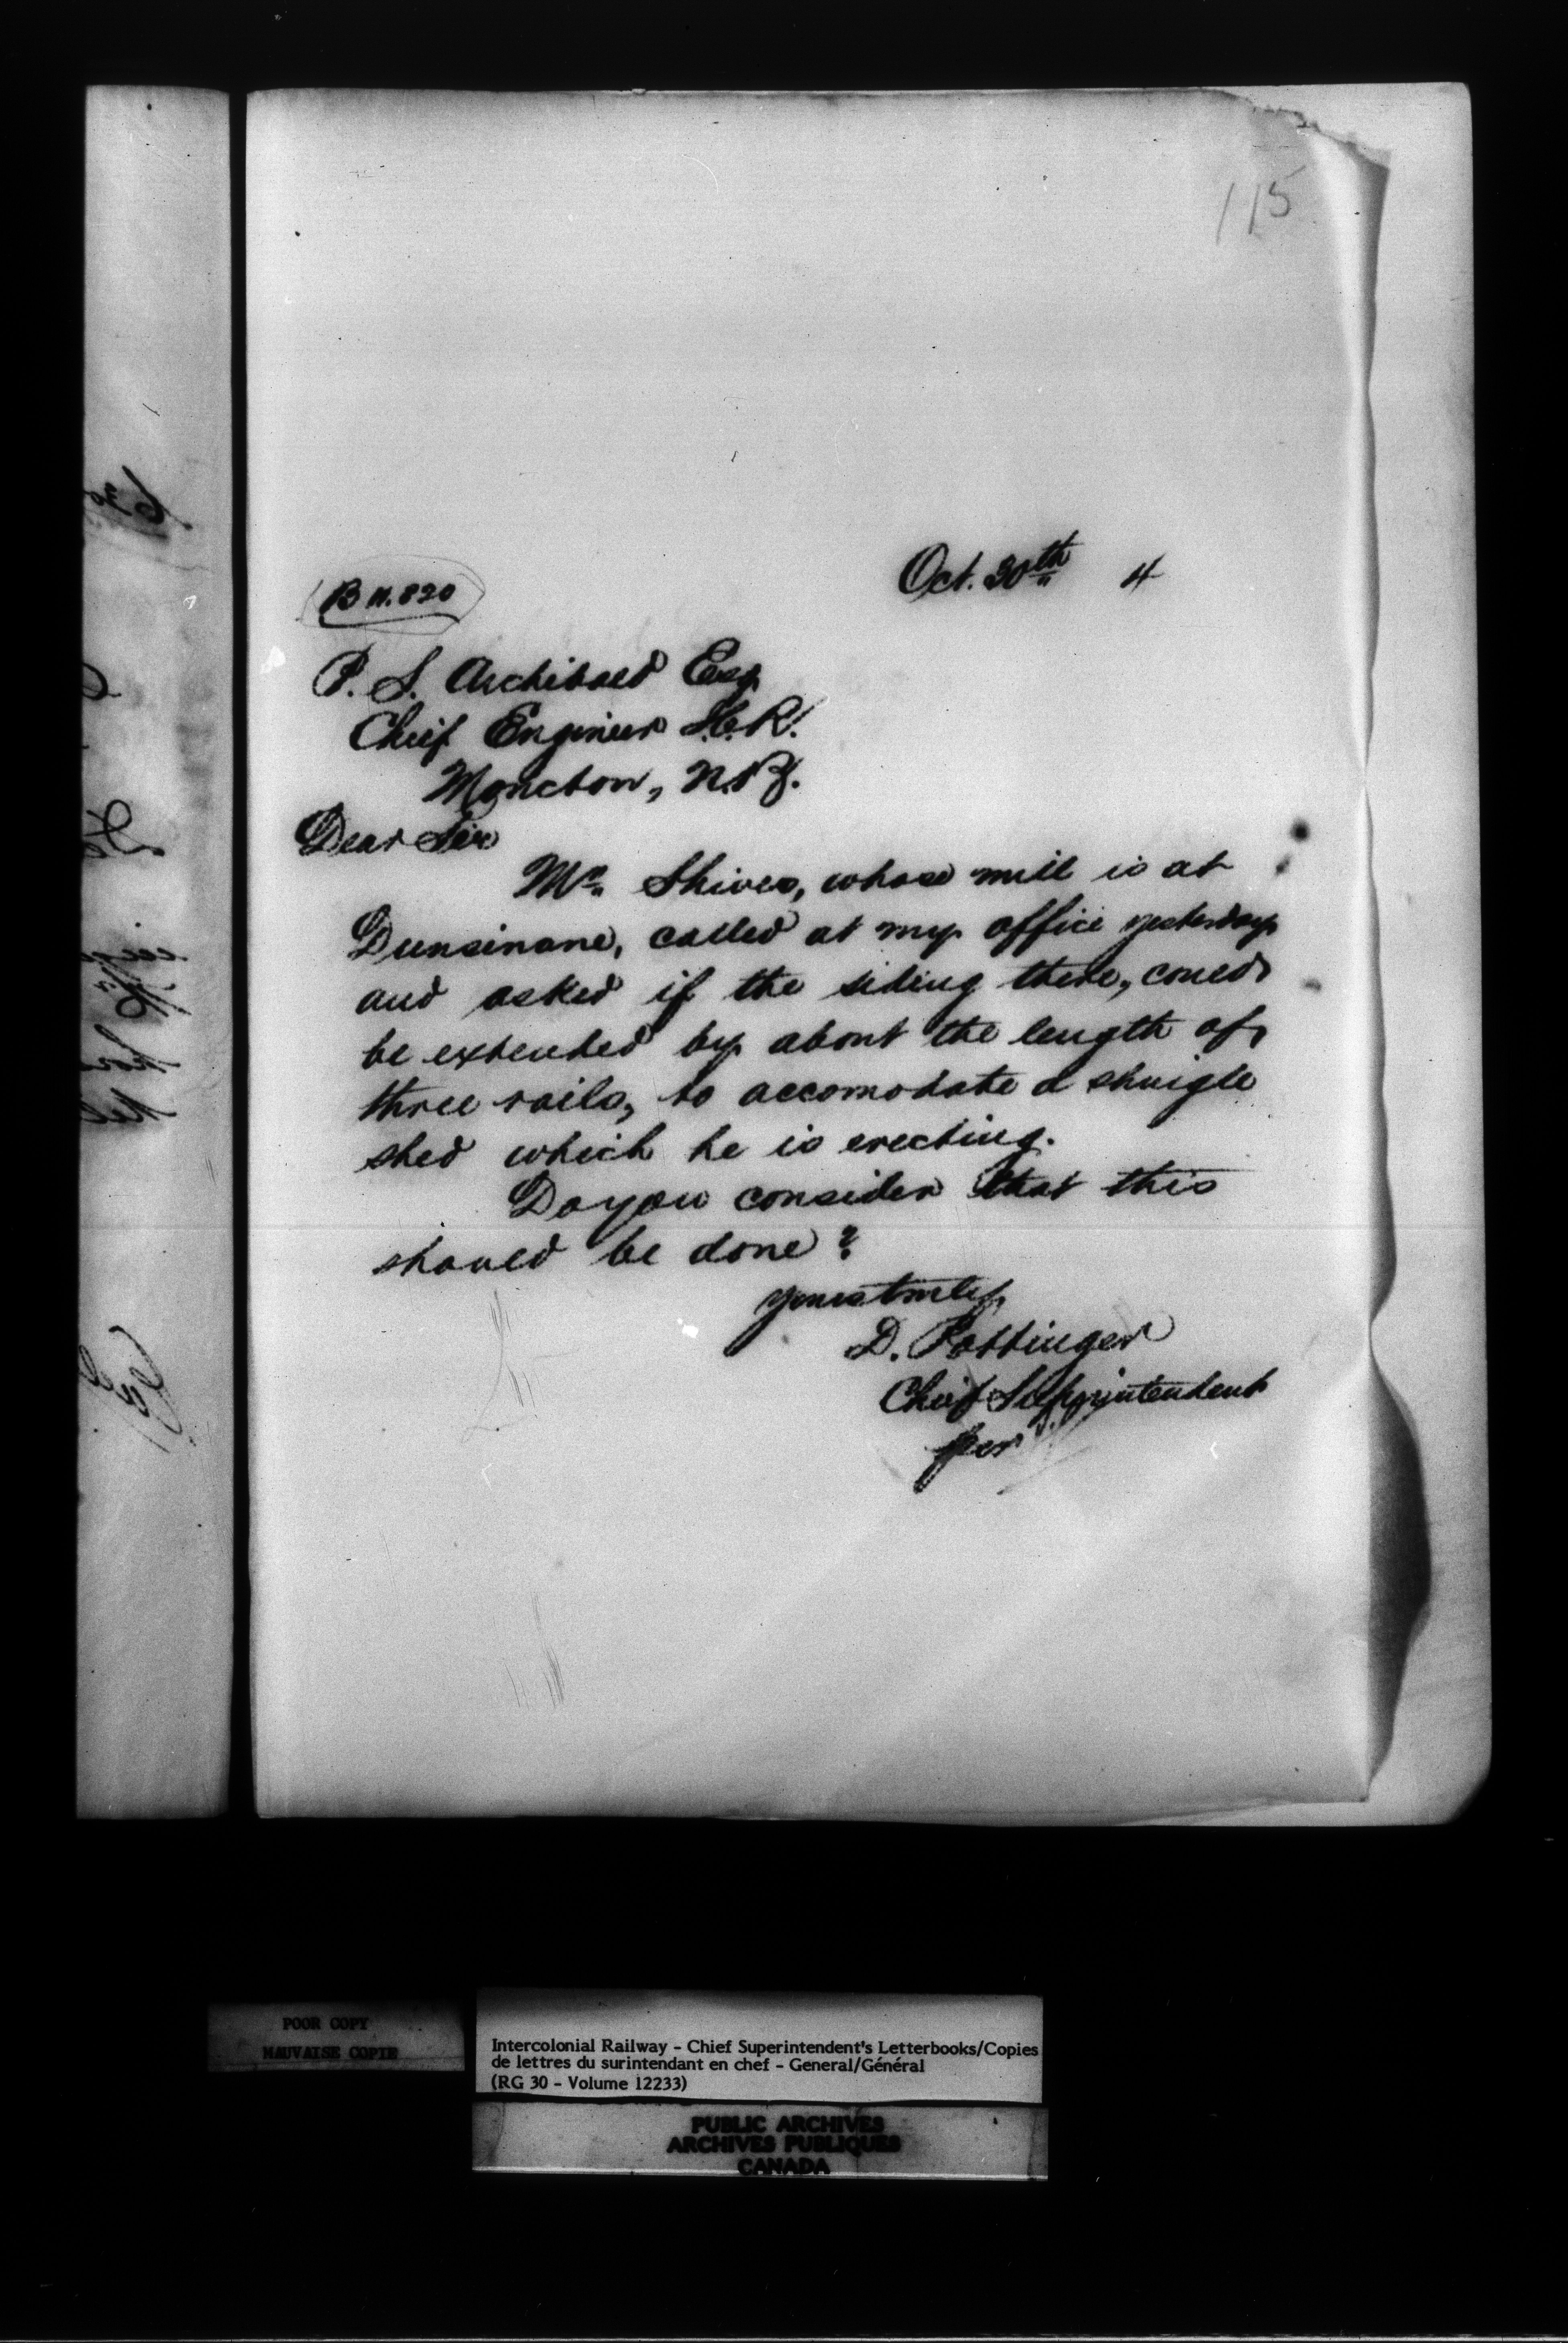 115
Oct. 30th 4
B N. 820
P. S. Archibald Esq
Chief Engineer I.C.R.
Moncton, N.B.
Dear Sir
Mr. Shives, whose mill is at
Dunsinane, called at my office yesterday
and asked if the siding there, could
be extended by about the length of
three rails, to accomodate a shingle
shed which he is erecting.
Do you consider that this
should be done?
Yours truly
D. Pottinger
Chief Superintendent
per
POOR COPY
MAUVAISE COPIE
Intercolonial Railway - Chief Superintendent's Letterbooks/Copies
de lettres du surintendant en chef - General/Général
(RG 30 - Volume 12233)
PUBLIC ARCHIVES
ARCHIVES PUBLIQUES
CANADA